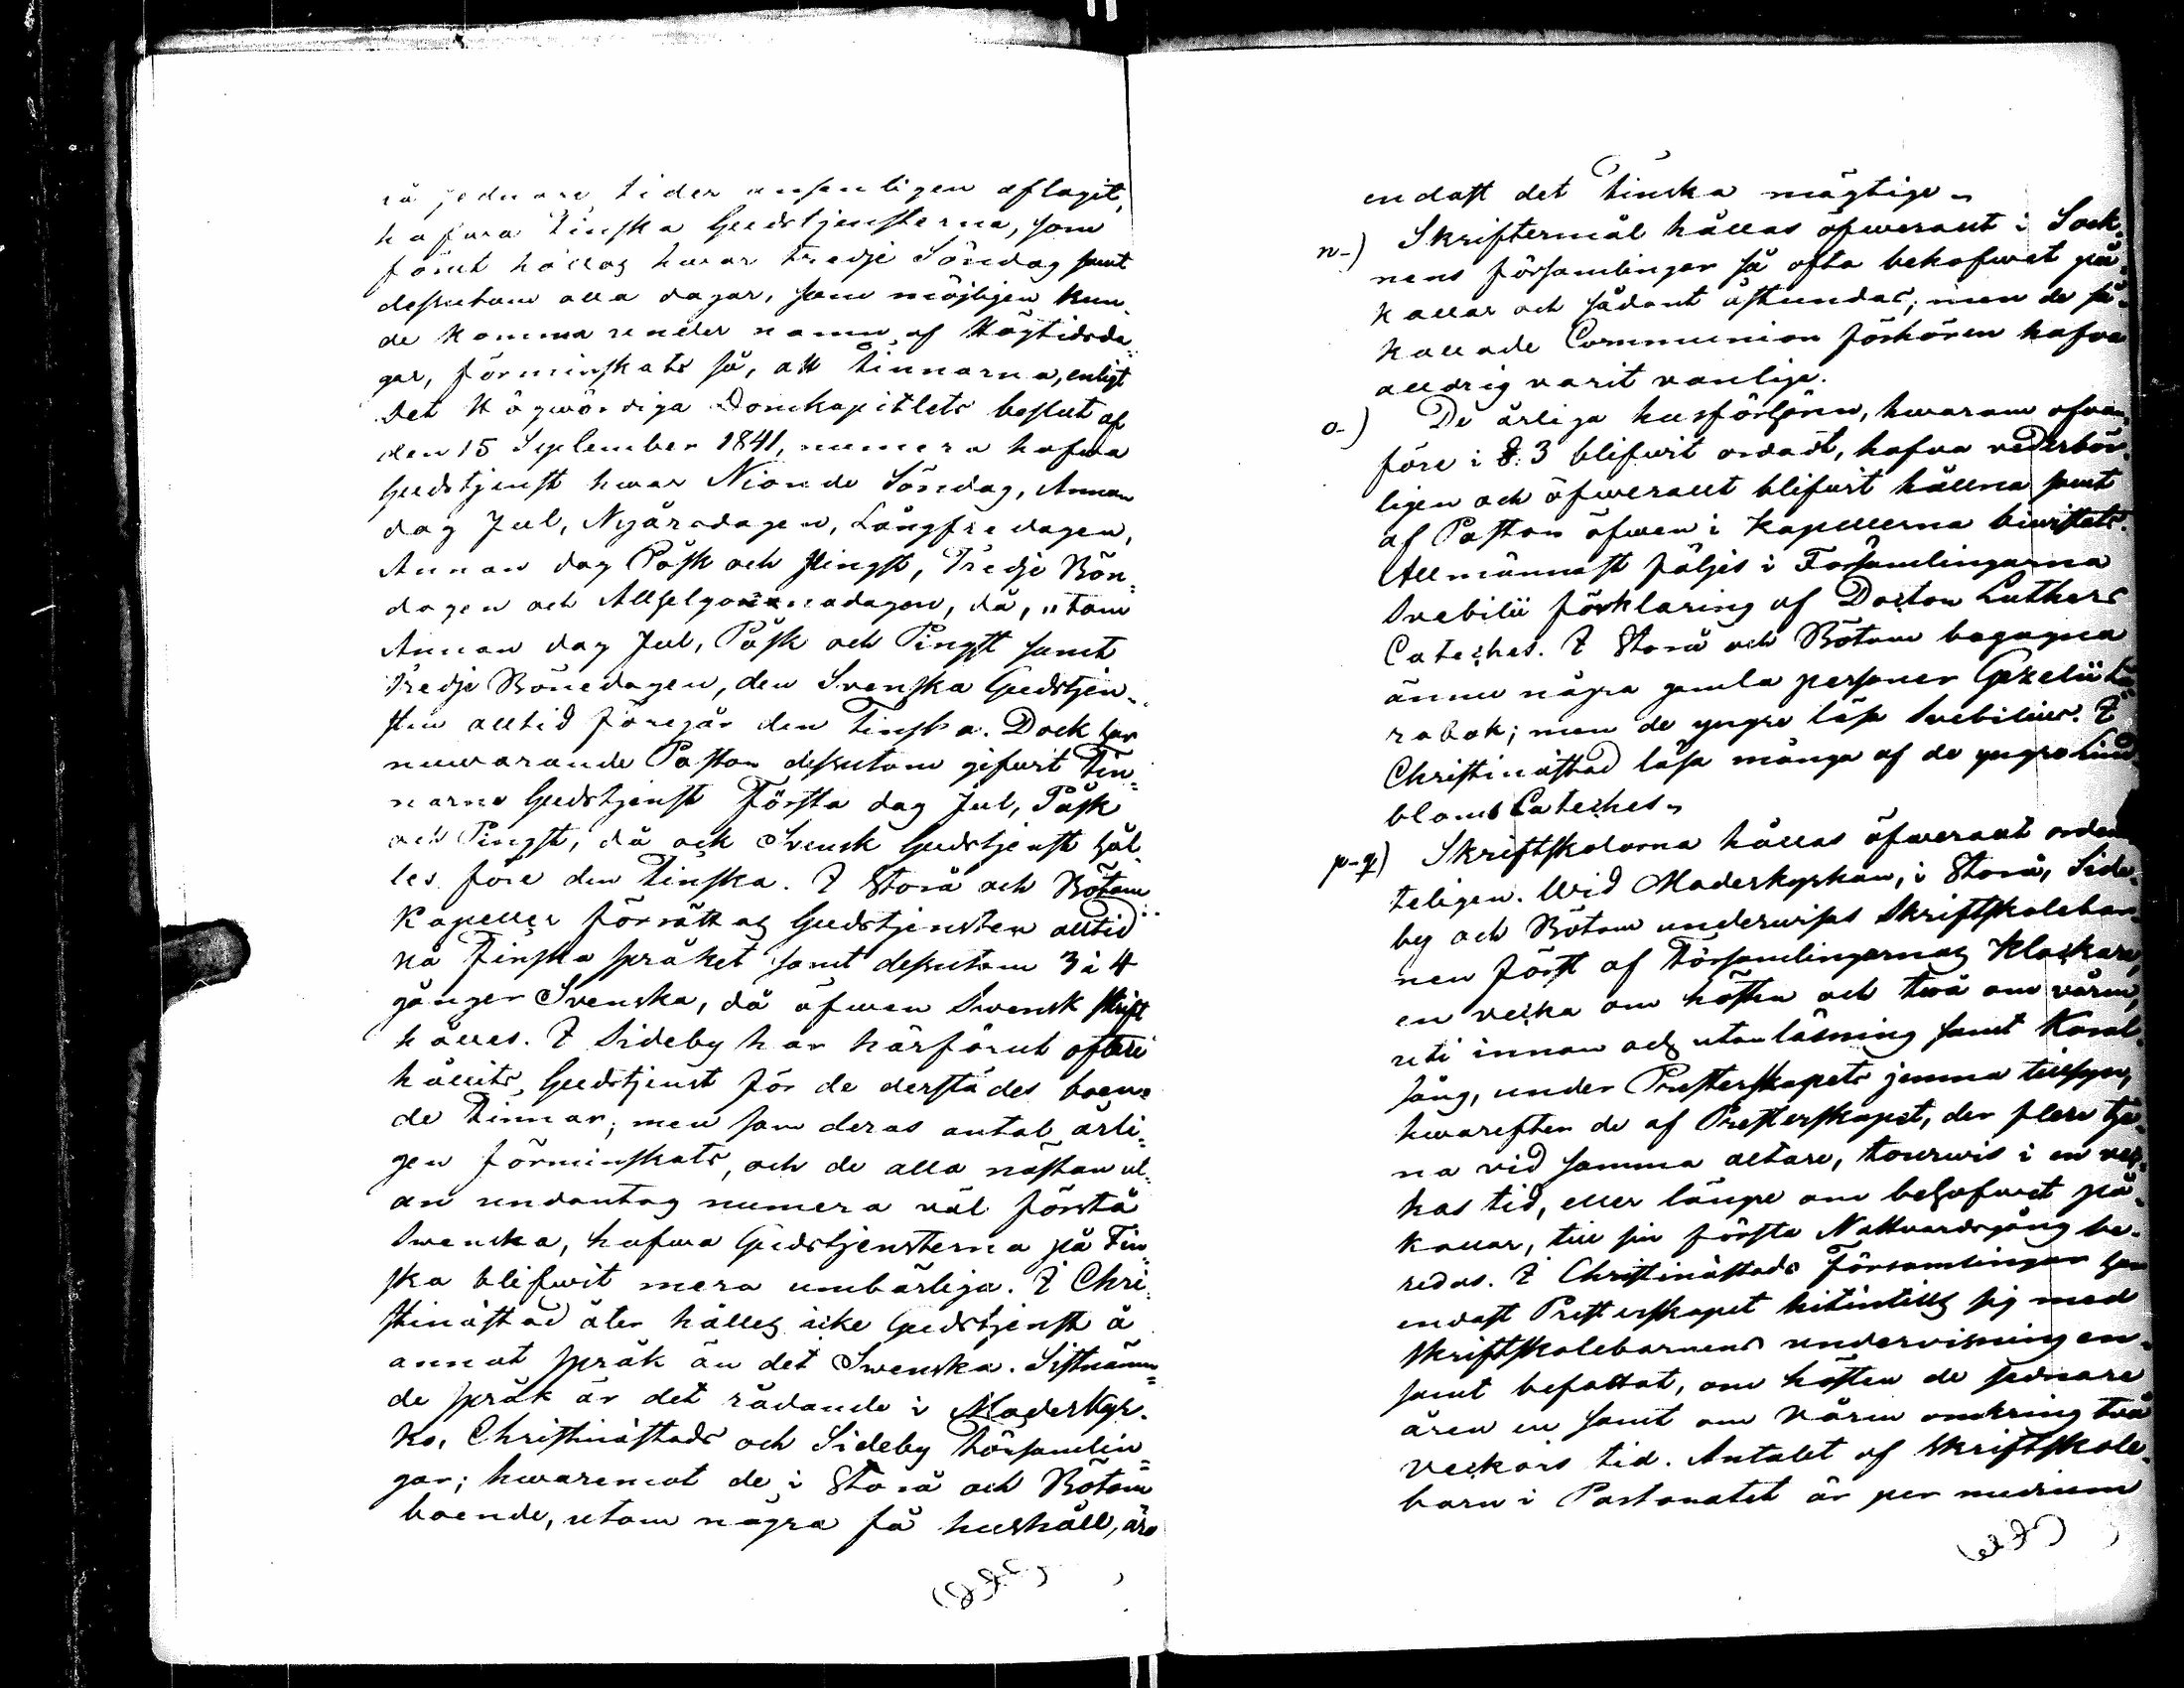 på sednare tider ansenligen aftagit,
hafwa Finska Gudstjensterna, som
förut hållos hwar tredje Söndag samt
dessutom alla dagar, som möjligen kun-
de komma under namn af Högtidsda-
gar, förminskats så, att Finnarna, enligt
Det Högwördiga Domkapitlets beslut af
den 15 September 1841, numera hafwa
Gudstjenst hwar Nionde Söndag, Annan
dag Jul, Nyårsdagen, Långfredagen,
Annan dag Påsk och Pingst, Tredje Bön-
dagen och Allhelgonnadagen, då, utom
Annan dag Jul, Påsk och Pingst samt
Tredje Bönedagen, den Svenska Gudstjen-
sten alltid föregår den Finska. Dock har
nuwarande Pastor dessutom gifwit Fin-
narne Gudstjenst Första dag Jul, Påsk
och Pingst, då ock Svensk Gudstjenst hål-
les före den Finska. I Storå och Bötom
Kapeller förrättas Gudstjensten alltid
på Finska språket samt dessutom 3 à 4
gånger Svenska, då äfwen Swensk skrift
hålles. I Sideby har härförut oftare
hållits Gudstjenst för de derstädes boen-
de Finnar; men som deras antal årli-
gen förminskats, och de alla nästan ut-
an undantag numera väl förstå
Swenska, hafwa Gudstjensterna på Fin-
ska blifwit mera umbärliga. I Chri-
stinästad åter hålles icke Gudstjenst å
annat språk än det Swenska. Sistnämn-
de språk är det rådande i Moderkyr-
ko, Christinästads och Sideby Församlin-
gar; hwaremot de i Storå och Bötom
boende, utom några få hushåll, äro
endast det Finska mägtige.
n-) Skriftermål hållas öfwerallt i Sock-
nens församlingar så ofta behofwet på-
kallar och sådant åstundas; men de så
kallade Communion förhören hafva
alldrig varit vanlige.
o-) De årliga husförhören, hwarom ofvan-
före i §. 3 blifwit ordadt, hafva vederbör-
ligen och öfwerallt blifwit hållna samt
af Pastor äfwen i Kapellerna biwistats.
Allmännast följes i Församlingarna
Svebilii förklaring af Doctor Luthers
Catechés. I Storå och Bötom begagna
ännu några gamla personer Gezelii Lä-
robok; men de yngre läsa Svebilius. I
Christinästad läsa många af de yngre Lind-
bloms Cateches.
p-q) Skriftskolorna hållas öfwerallt orden-
teligen. Wid Moderkyrkan, i Storå, Side-
by och Bötom underwisas Skriftskolebar-
nen först af Församlingarnas Klockare,
en vecka om hösten och twå om våren,
uti innan och utanläsning samt Koral-
sång, under Presterskapets jemna tillsyn,
hwareften de af Presterskapet, der flere tje-
na vid samma altare, tourwis i en vec-
kas tid, eller längre om behofwet på-
kallar, till sin första Nattvardsgång be-
redas. I Christinästads Församlingar har
endast Presterskapet hitintills sig med
skriftskolebarnens undervisning en-
samt befattat, om hösten de sednare
åren en samt om våren omkring två
veckors tid. Antalet af Skriftskole-
barn i Pastoratet är per medium